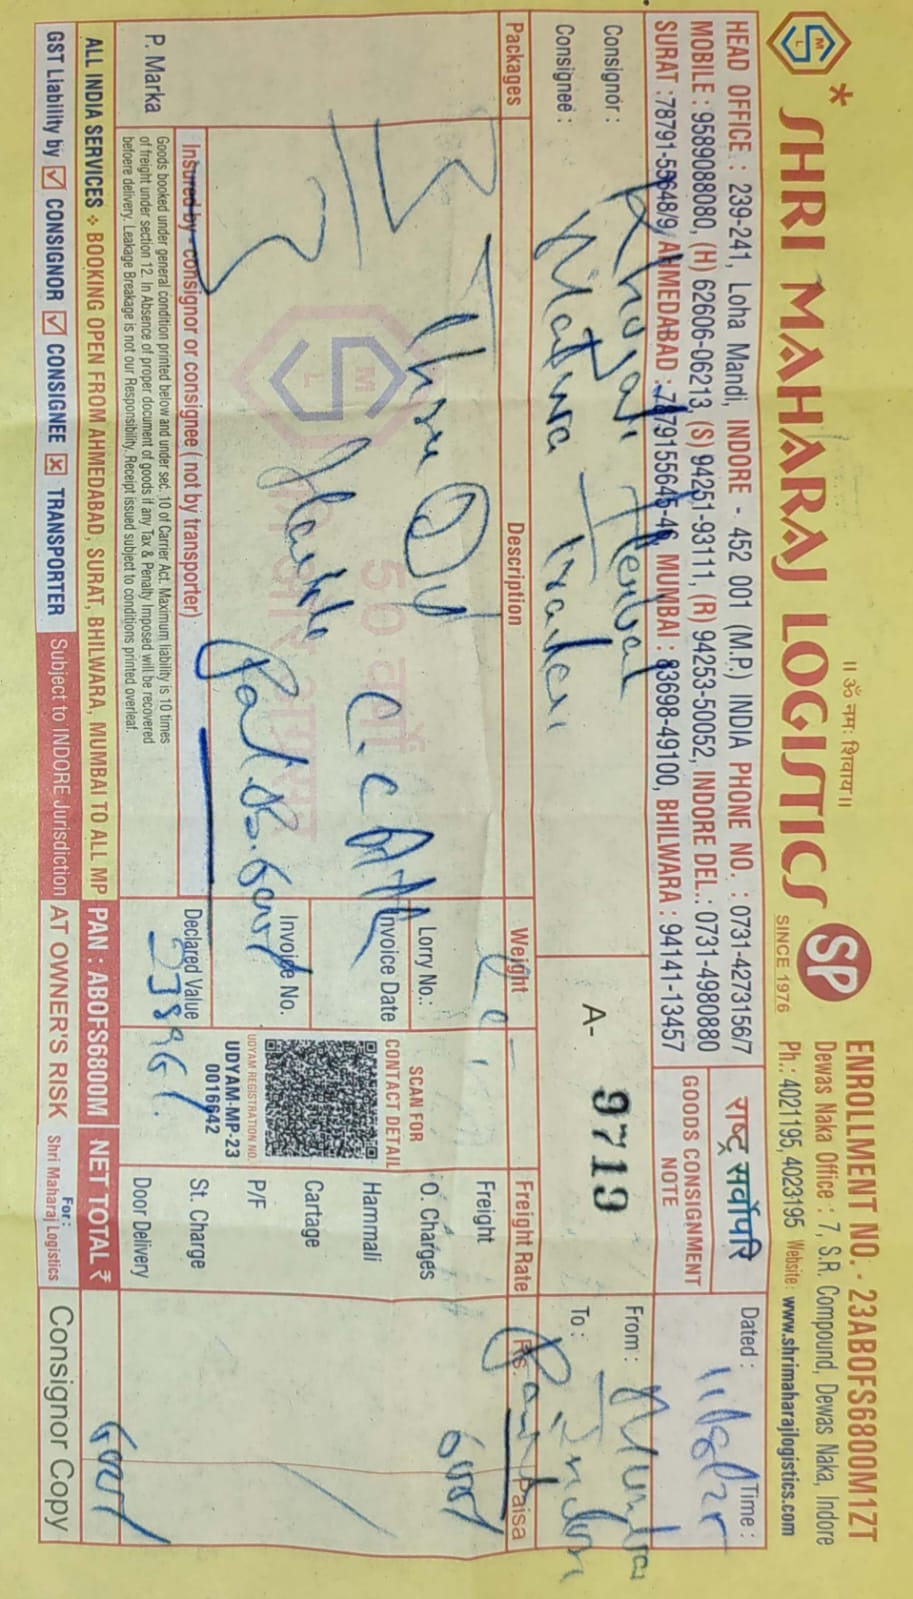 ॥ ॐ नमः शिवाय ॥
* SHRI MAHARAJ LOGISTICS
SP
SINCE 1976
ENROLLMENT NO. - 23ABOFS6800M1ZT
Dewas Naka Office : 7, S.R. Compound, Dewas Naka, Indore
Ph.: 4021195, 4023195 Website: www.shrimaharajlogistics.com
HEAD OFFICE : 239-241, Loha Mandi, INDORE - 452 001 (M.P.) INDIA PHONE NO. : 0731-4273156/7
MOBILE : 9589088080, (H) 62606-06213, (S) 94251-93111, (R) 94253-50052, INDORE DEL.: 0731-4980880
SURAT :78791-55648/9, AHMEDABAD : 7879155645-46, MUMBAI : 83698-49100, BHILWARA : 94141-13457
राष्ट्र सर्वोपरि
GOODS CONSIGNMENT
NOTE
Dated :
Time :
Consignor :
Consignee :
A- 9719
From : Mumbai
To : Indore
Packages Description Weight Freight Rate Rs. Paisa
Three
C.C
Lorry No.:
Invoice Date
Invoice No.
Declared Value
SCAN FOR
CONTACT DETAIL
UDYAM REGISTRATION NO.
UDYAM-MP-23
0016642
Freight
O. Charges
Hammali
Cartage
P/F
St. Charge
Door Delivery
Insured by - consignor or consignee ( not by transporter)
P. Marka
Goods booked under general condition printed below and under sec. 10 of Carrier Act. Maximum liability is 10 times
of freight under section 12. In Absence of proper document of goods if any Tax & Penalty Imposed will be recovered
befoere delivery. Leakage Breakage is not our Responsibility. Receipt issued subject to conditions printed overleaf.
ALL INDIA SERVICES BOOKING OPEN FROM AHMEDABAD, SURAT, BHILWARA, MUMBAI TO ALL MP
PAN : ABOFS6800M
NET TOTAL ₹
GST Liability by CONSIGNOR CONSIGNEE TRANSPORTER
Subject to INDORE Jurisdiction
AT OWNER'S RISK
For :
Shri Maharaj Logistics
Consignor Copy